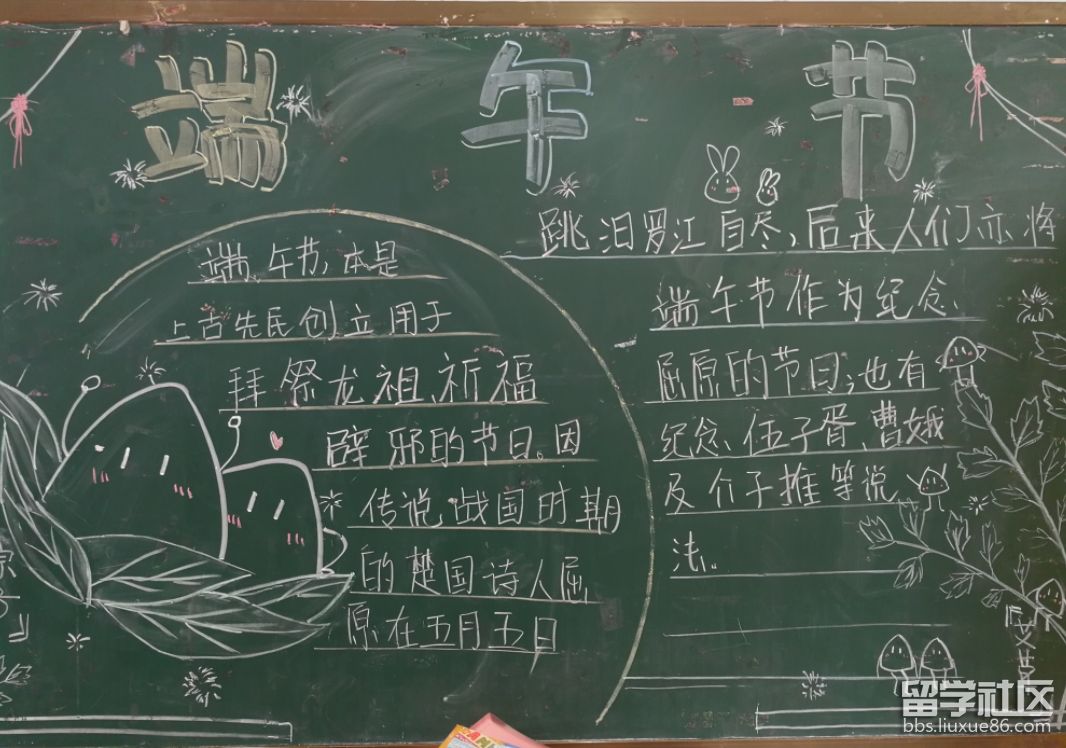 端午节
端午节,本是
上古先民创立用于
拜祭龙祖、祈福
辟邪的节日。因
传说战国时期
的楚国诗人屈
原在五月五日
跳汨罗江自尽,后来人们亦将
端午节作为纪念
屈原的节日;也有
纪念、伍子胥、曹娥
及介子推等说
法。
留学社区
bbs.liuxue86.com